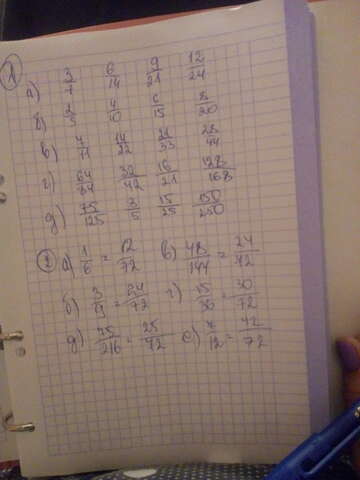 1
а) 3/7 6/14 9/21 12/24
б) 2/5 4/10 6/15 8/20
в) 7/11 14/22 21/33 28/44
г) 64/84 32/42 16/21 128/168
д) 75/125 3/5 15/25 150/250
2 а) 1/6 = 12/72 в) 48/144 = 24/72
б) 3/9 = 24/72 г) 15/36 = 30/72
д) 75/216 = 25/72 е) 7/12 = 42/72